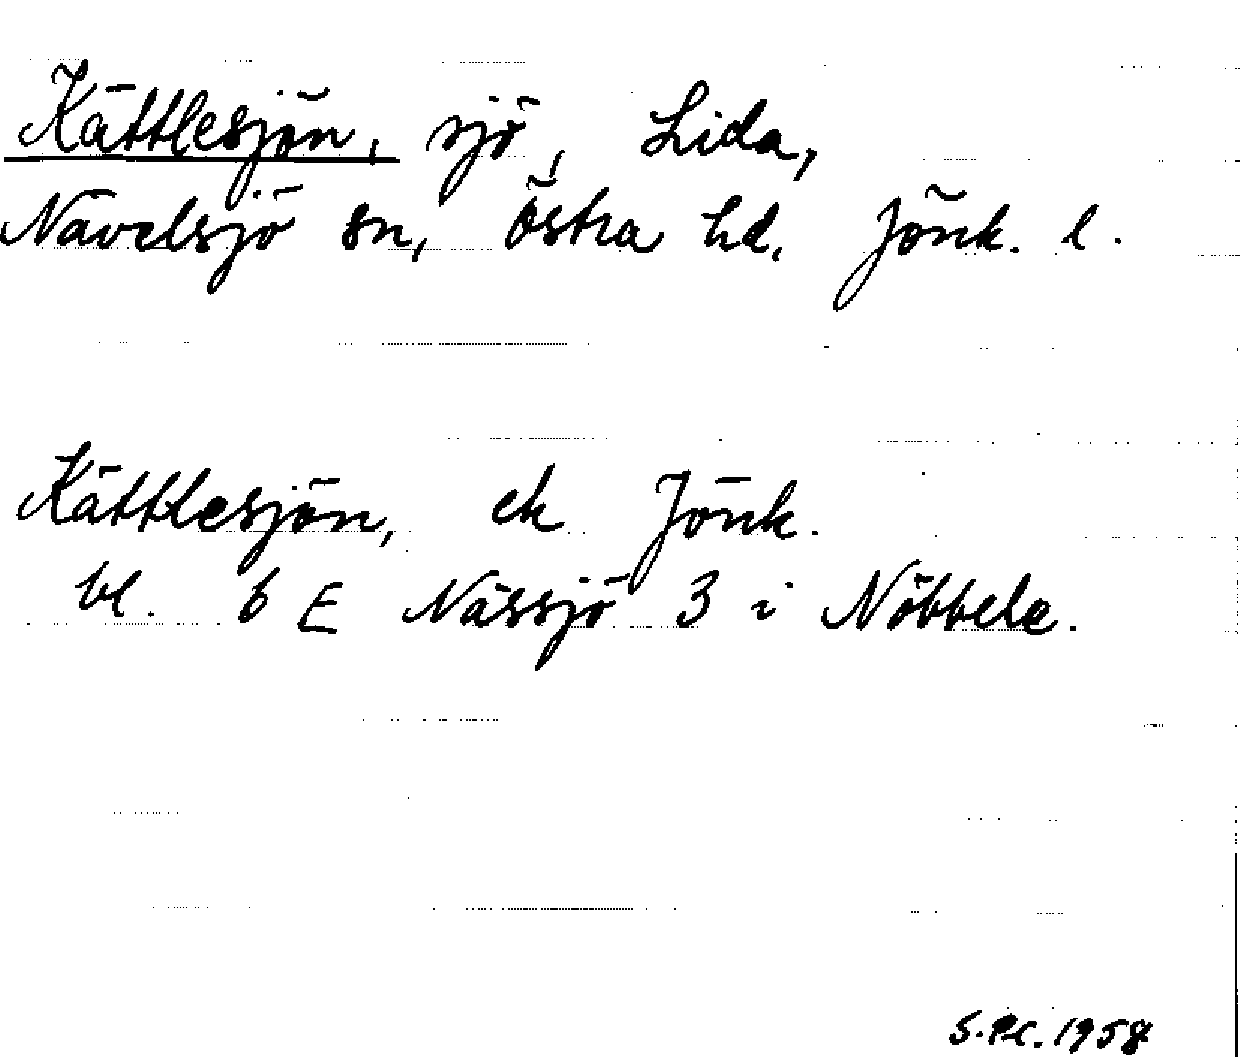 Kättlesjön, sjö, Lida,
Nävelsjö sn, Östra hd, Jönk. l.
Kättlesjön, ek Jönk.
bl. 6 E Nässjö 3 i Nöbbele.
S.Pc. 1958